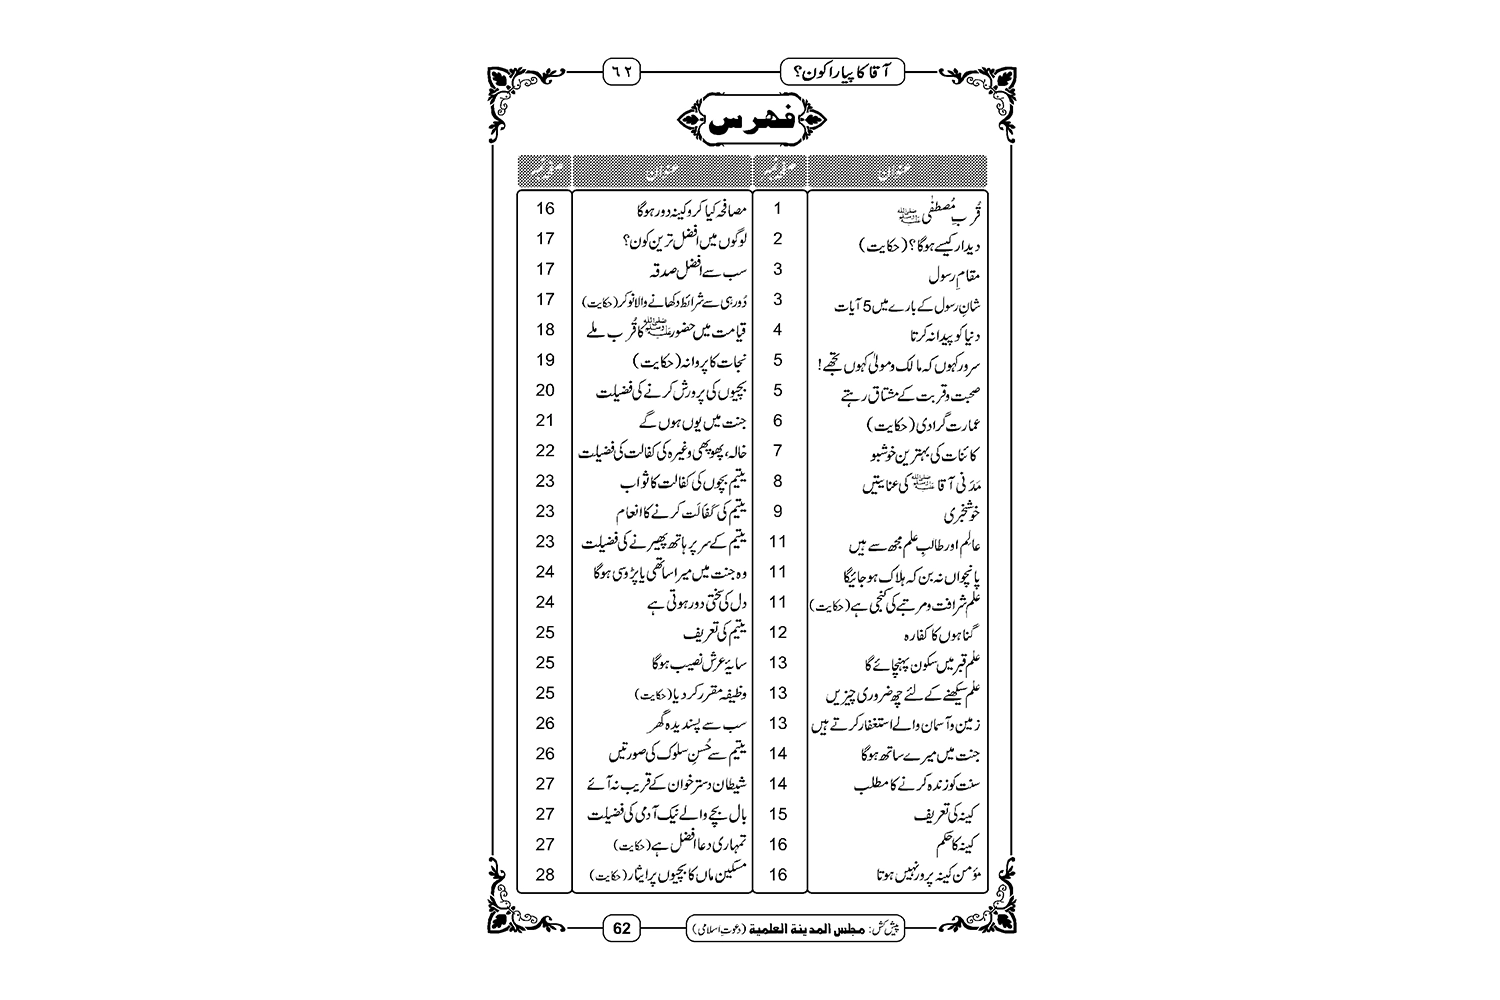 آقا کا پیارا کون؟ ٦٢
فہرس
عنوان صفحہ نمبر عنوان صفحہ نمبر
قُربِ مُصطفٰی ﷺ 1 مصافحہ کیا کرو کینہ دور ہوگا 16
دیدار کیسے ہوگا؟ (حکایت) 2 لوگوں میں افضل ترین کون؟ 17
مقامِ رسول 3 سب سے افضل صدقہ 17
شانِ رسول کے بارے میں 5 آیات 3 دُور ہی سے شرائط دکھانے والا نوکر (حکایت) 17
دنیا کو پیدا نہ کرتا 4 قیامت میں حضور ﷺ کا قُرب ملے 18
سرور کہوں کہ مالک و مولیٰ کہوں تجھے! 5 نجات کا پروانہ (حکایت) 19
صحبت و قربت کے مشتاق رہتے 5 بچیوں کی پرورش کرنے کی فضیلت 20
عمارت گرادی (حکایت) 6 جنت میں یوں ہوں گے 21
کائنات کی بہترین خوشبو 7 خالہ، پھوپھی وغیرہ کی کفالت کی فضیلت 22
مَدَنی آقا ﷺ کی عنایتیں 8 یتیم بچوں کی کفالت کا ثواب 23
خوشخبری 9 یتیم کی کَفالَت کرنے کا انعام 23
عالِم اور طالبِ علم مجھ سے ہیں 11 یتیم کے سر پر ہاتھ پھیرنے کی فضیلت 23
پانچواں نہ بن کہ ہلاک ہو جائیگا 11 وہ جنت میں میرا ساتھی یا پڑوسی ہوگا 24
علم شرافت و مرتبے کی کنجی ہے (حکایت) 11 دل کی سختی دور ہوتی ہے 24
گناہوں کا کفارہ 12 یتیم کی تعریف 25
علم قبر میں سکون پہنچائے گا 13 سایۂ عرش نصیب ہوگا 25
علم سیکھنے کے لئے چھ ضروری چیزیں 13 وظیفہ مقرر کر دیا (حکایت) 25
زمین و آسمان والے استغفار کرتے ہیں 13 سب سے پسندیدہ گھر 26
جنت میں میرے ساتھ ہوگا 14 یتیم سے حُسنِ سلوک کی صورتیں 26
سنت کو زندہ کرنے کا مطلب 14 شیطان دسترخوان کے قریب نہ آئے 27
کینہ کی تعریف 15 بال بچے والے نیک آدمی کی فضیلت 27
کینہ کا حکم 16 تمہاری دعا افضل ہے (حکایت) 27
مؤمن کینہ پرور نہیں ہوتا 16 مسکین ماں کا بچیوں پر ایثار (حکایت) 28
پیش کش: مجلس المدینة العلمیة (دعوتِ اسلامی) 62